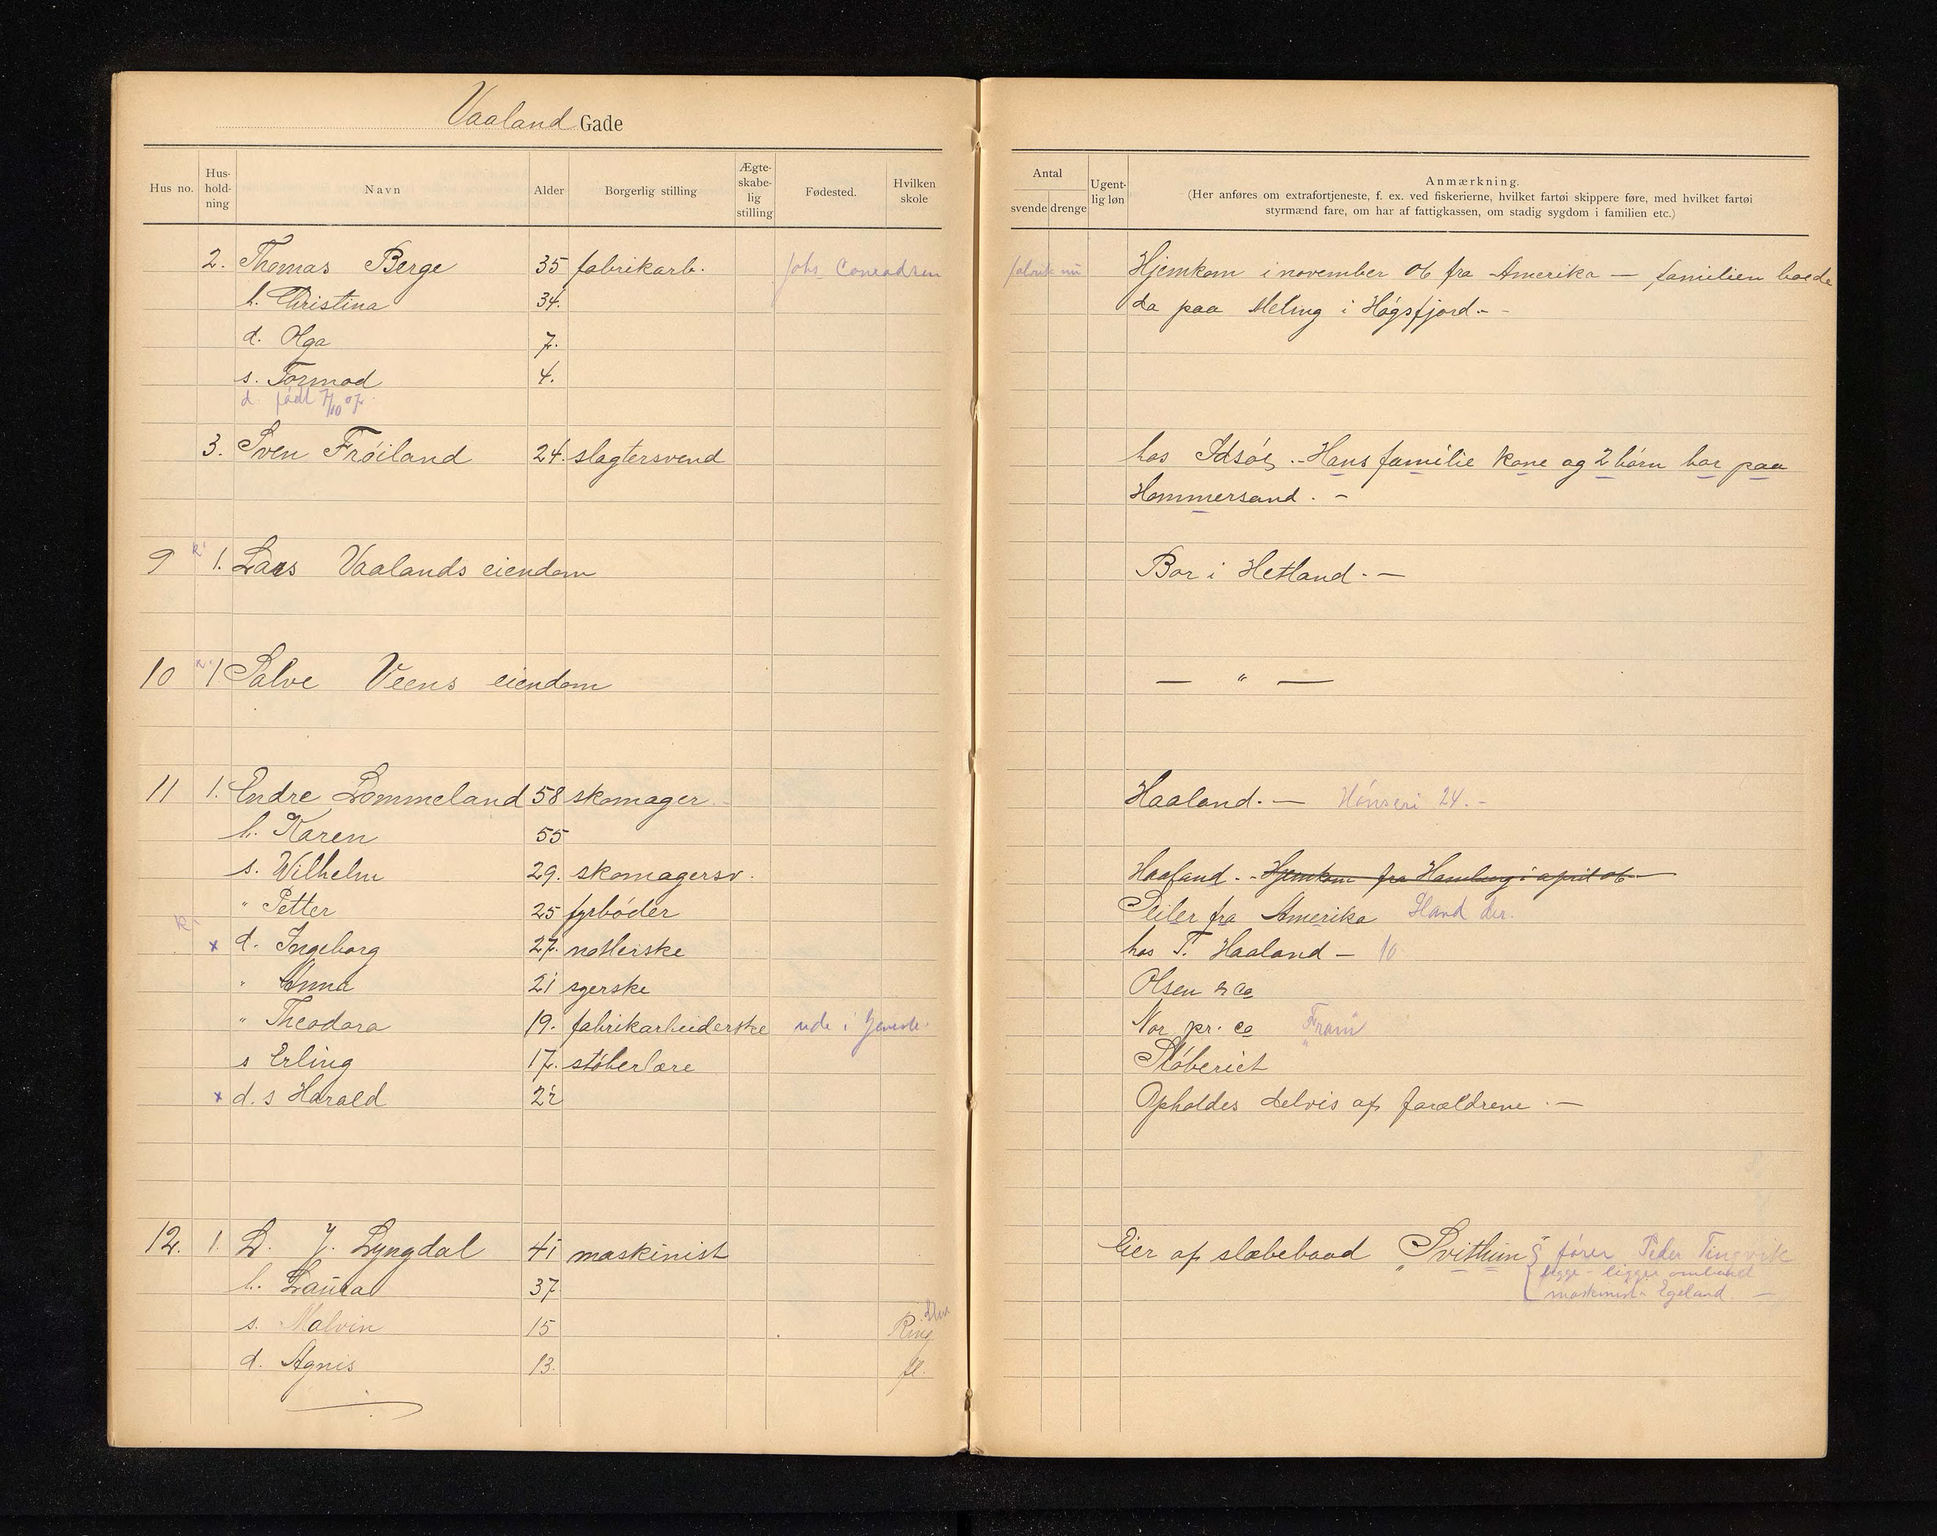 Vaaland Gade
Hus no. Hus-hold-ning Navn Alder Borgerlig stilling Ægte-skabe-lig stilling Fødested. Hvilken skole Antal svende drenge Ugent-lig løn Anmærkning.
(Her anføres om extrafortjeneste, f. ex. ved fiskerierne, hvilket fartøi skippere føre, med hvilket fartøi
styrmænd fare, om har af fattigkassen, om stadig sygdom i familien etc.)
2. Thomas Berge 35 fabrikarb. Johs Conradsen fabrik nu Hjemkom i november 06 fra Amerika — familien boede
h. Christina 34. da paa Meling i Høgsfjord. -
d. Olga 7.
s. Tormod 4.
d. født 7/10 07.
3. Sven Frøiland 24. slagtersvend hos Idsøe. - Hans familie kone og 2 børn bor paa
Hommersand. -
9 1. Lars Vaalands eiendom Bor i Hetland. —
10 1 Salve Veens eiendom — " —
11 1. Endre Lommeland 58 skomager Haaland. — Hønseri 24. -
h. Karen 55
s. Wilhelm 29. skomagersv. Haaland. - Hjemkom fra Hamburg i april 06 —
" Petter 25 fyrbøder Seiler fra Amerika
x d. Ingeborg 27. notlerske hos T. Haaland — 10
" Anna 21 syerske Olsen & Co
" Theodora 19. fabrikarbeiderske ude i Nor. pr. Co "Fram"
s Erling 17. støberlære Støberiet
x d. s Harald 2 Opholdes delvis af forældrene. —
12. 1. L. J. Lyngdal 41 maskinist Eier af slæbebaad "Svithun" fører Peder Tingvik
h. Laura 37 ligger ombord
maskinist Egeland. —
s. Malvin 15 Ring
d. Agnis 13. fl.